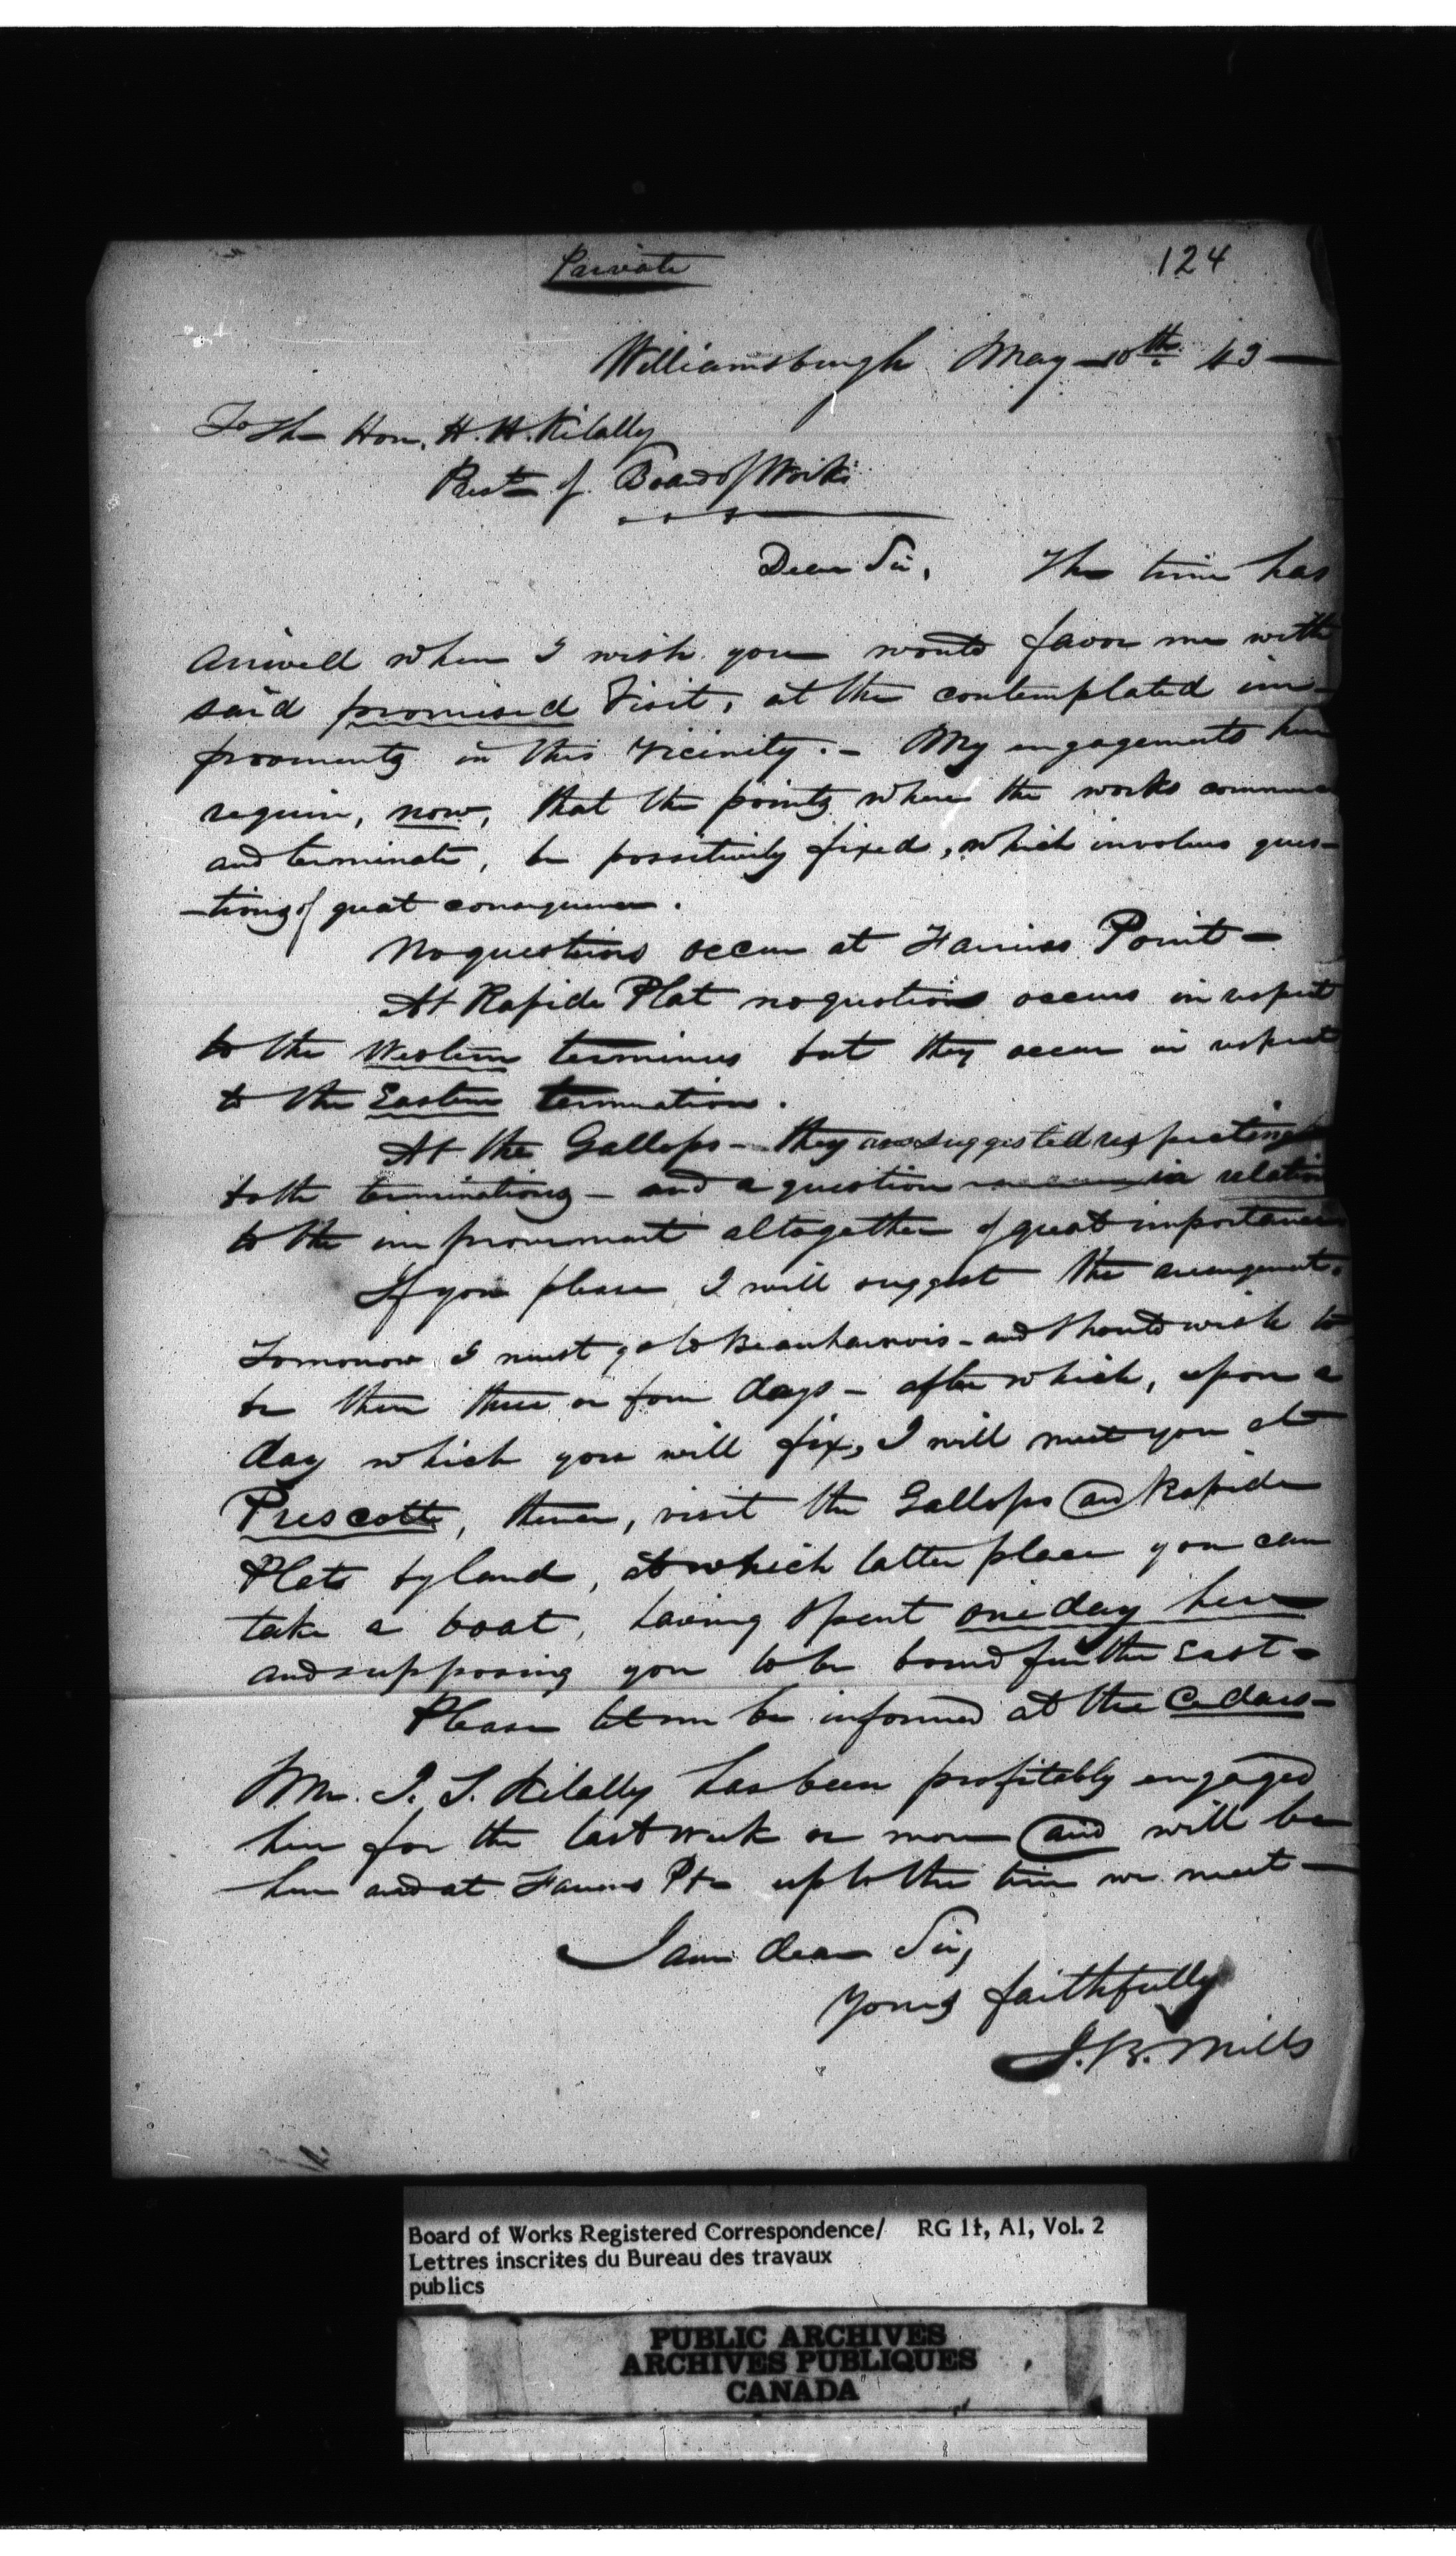 Private
124
Williamsburgh May 10th. 43 —
To the Hon. H. H. Kilally
Prest of Board of Works
Dear Sir, The time has
arrived when I wish you would favor me with
said promised Visit, at the contemplated im-
provments in this Vicinity. - My engagements here
require, now, that the points where the works commence
and terminate, be possitively fixed, which involves ques-
-tions of great consequence.
No questions occur at Farrins Point -
At Rapide Plat no questions occurs in respect
to the Western terminus but they occur in respect
to the Eastern termination.
At the Gallops - they are suggested respecting
both terminations - and a question in relation
to the improvement altogether of great importance
If you please I will suggest the arrangement.
Tomorrow I must go to Beauharnois - and should wish to
be there three or four days - after which, upon a
day which you will fix, I will meet you at
Prescott, thence, visit the Gallops and Rapide
Plats by land, at which latter place you can
take a boat, having spent one day here
and supposing you to be bound further East -
Please let me be informed at the Cedars -
Mr. J. S. Kilally has been profitably engaged
here for the last week or more and will be
here and at Farrens Pt - up to the time we meet -
I am dear Sir,
Yours faithfully
J. B. Mills
Board of Works Registered Correspondence/ RG 11, A1, Vol. 2
Lettres inscrites du Bureau des travaux
publics
PUBLIC ARCHIVES
ARCHIVES PUBLIQUES
CANADA